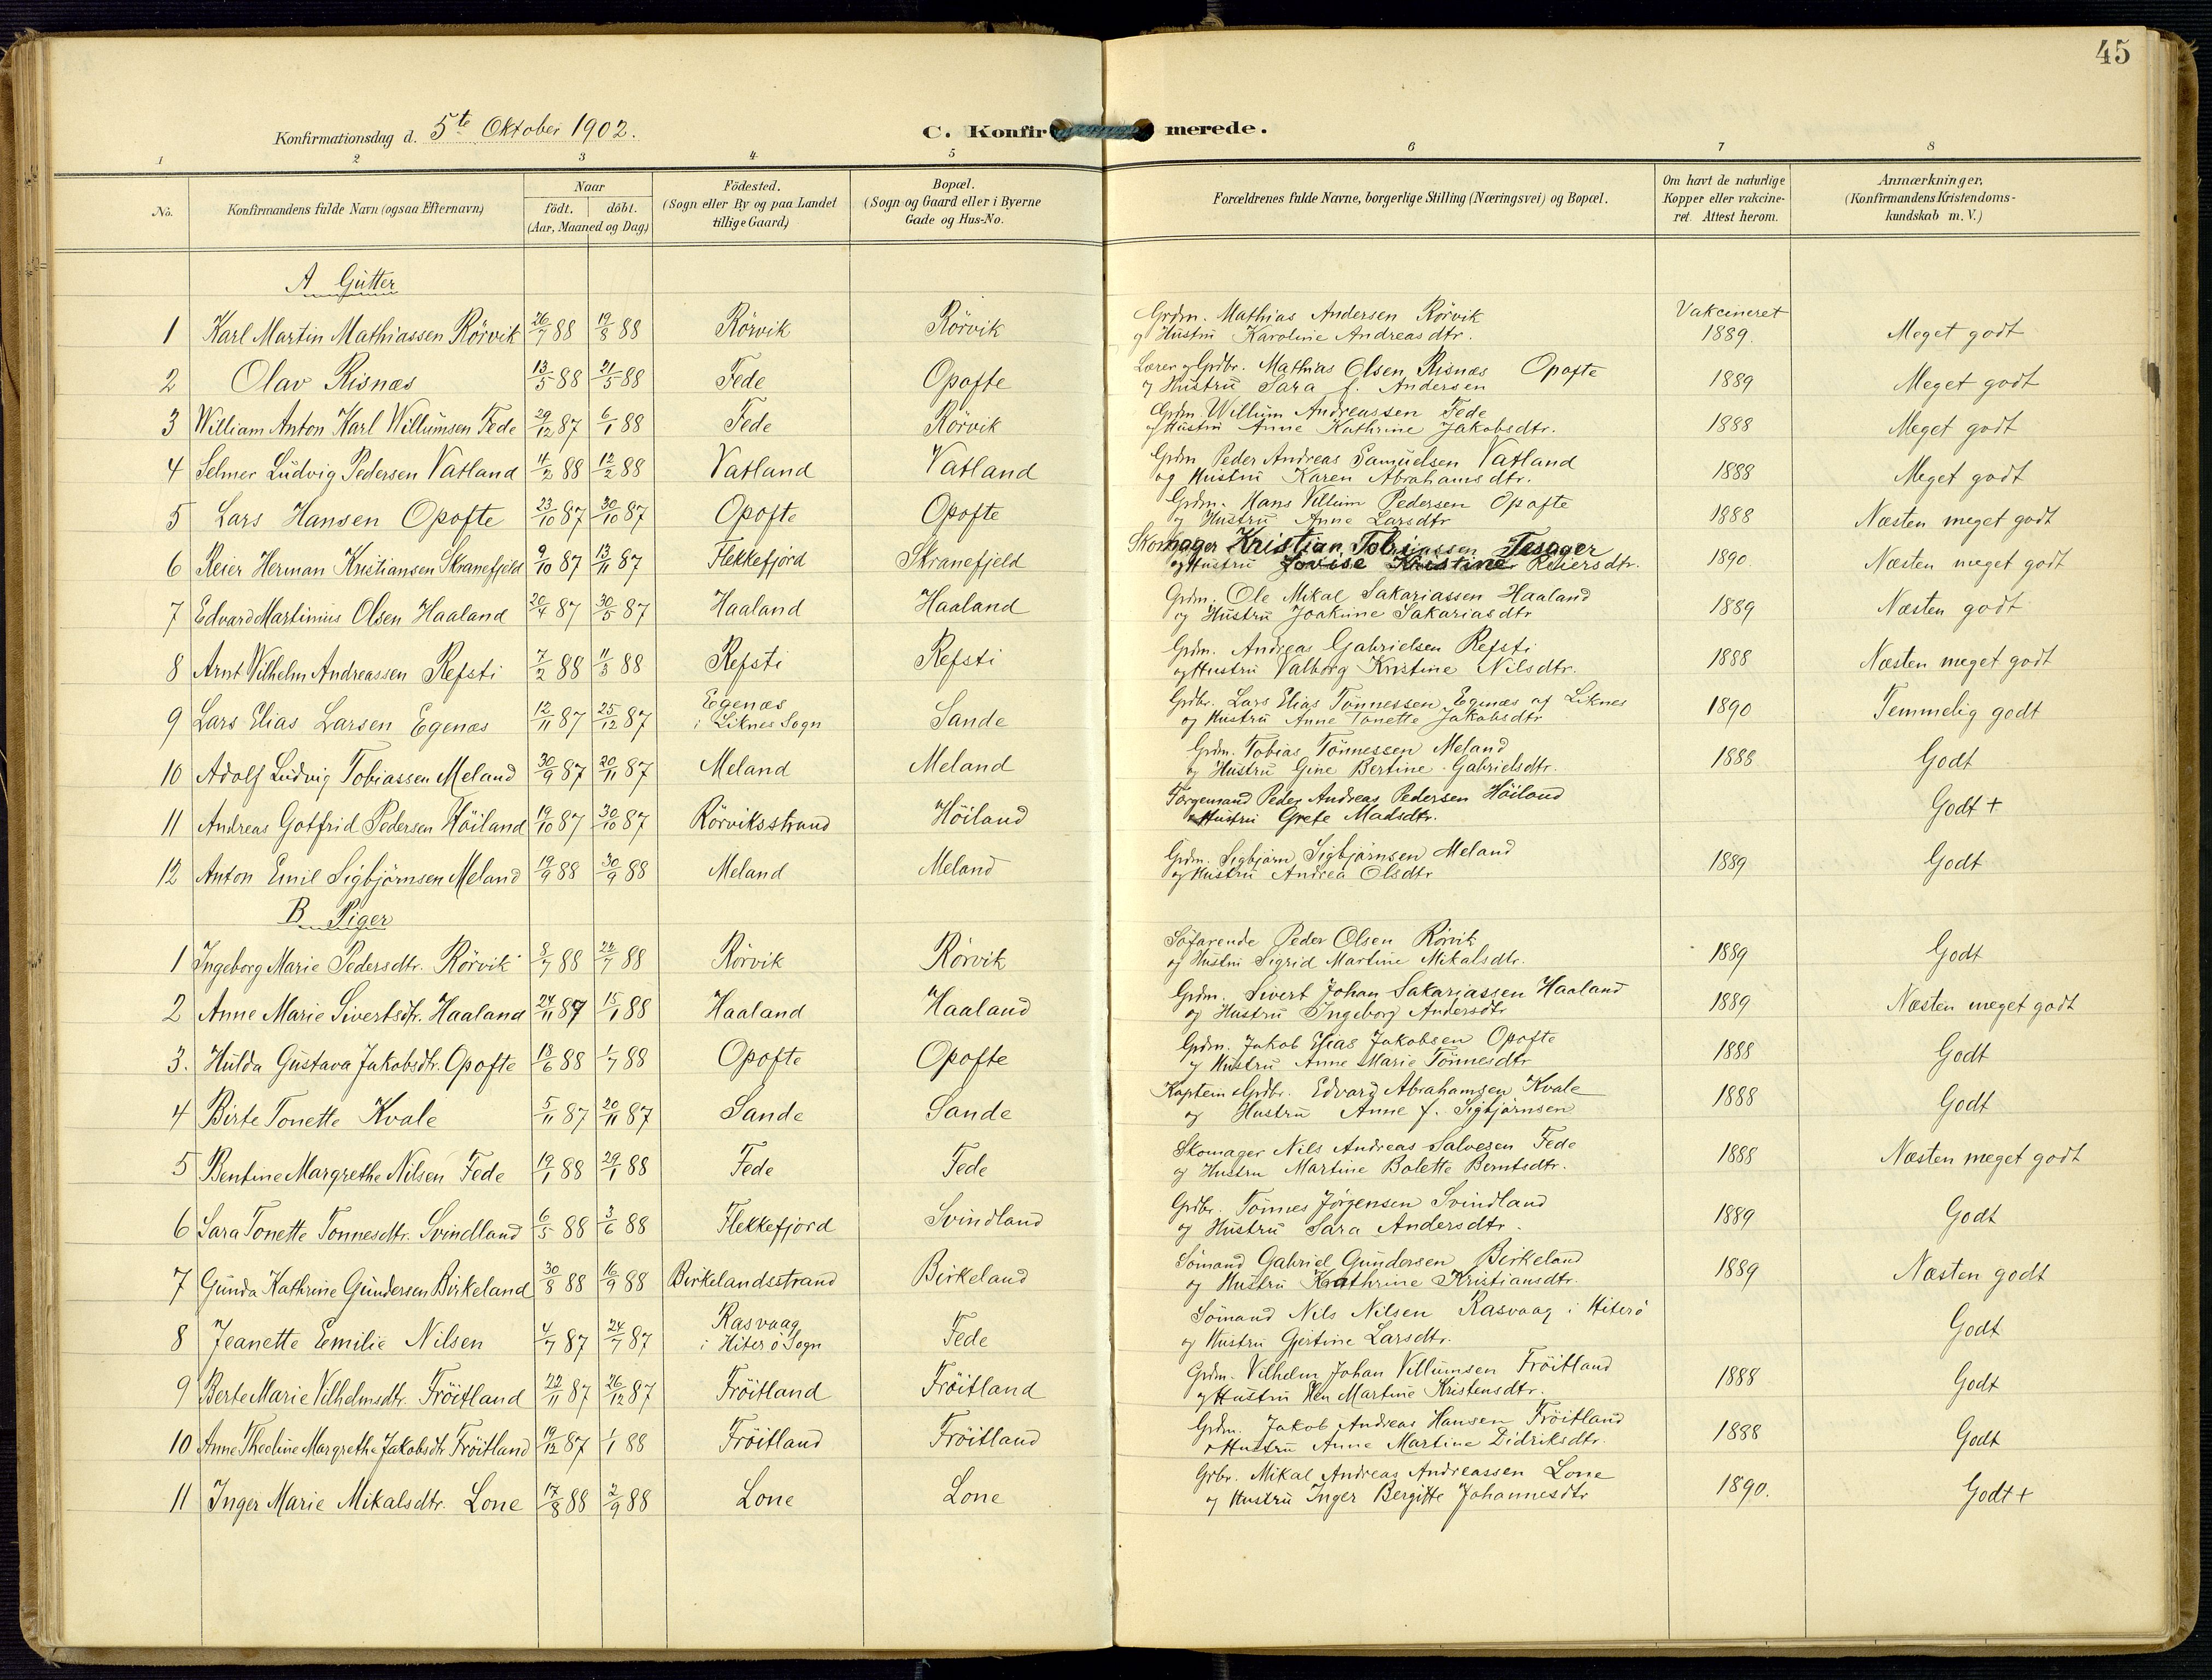 45
Konfirmationsdag d. 5te Oktober 1902.
C. Konfirmerede.
1 2 3 4 5 6 7 8
No.
Konfirmandens fulde Navn (ogsaa Efternavn)
Naar
födt. döbt.
(Aar, Maaned og Dag)
Födested.
(Sogn eller By og paa Landet
tillige Gaard)
Bopæl.
(Sogn og Gaard eller i Byerne
Gade og Hus-No.
Forældrenes fulde Navne, borgerlige Stilling (Næringsvei) og Bopæl.
Om havt de naturlige
Kopper eller vakcine-
ret. Attest herom.
Anmærkninger,
(Konfirmandens Kristendoms-
kundskab m. V.)
A Gutter
1 Karl Martin Mathiassen Rörvik 26/7 88 19/8 88 Rörvik Rörvik Grdm. Mathias Andersen Rörvik Vakcineret
og Hustru Karoline Andreasdtr. 1889. Meget godt
2 Olav Risnæs 13/5 88 21/5 88 Fede Opofte Lærer og Grdbr. Mathias Olsen Risnæs Opofte
og Hustru Sara f. Andersen 1889 Meget godt
3 William Anton Karl Willumsen Fede 29/12 87 6/1 88 Fede Rörvik Grdm. Willum Andreassen Fede
og Hustru Anne Kathrine Jakobsdtr. 1888 Meget godt
4 Selmer Ludvig Pedersen Vatland 4/2 88 12/2 88 Vatland Vatland Grdm Peder Andreas Samuelsen Vatland
og Hustru Karen Abrahamsdtr. 1888 Meget godt
5 Lars Hansen Opofte 23/10 87 30/10 87 Opofte Opofte Grdm. Hans Villum Pedersen Opofte
og Hustru Anne Larsdtr 1888 Næsten meget godt
6 Reier Herman Kristiansen Skranefjeld 9/10 87 13/11 87 Flekkefjord Skranefjeld Skomager Kristian Tobiassen Tesager
og Hustru Lovise Kristine Reiersdtr. 1890. Næsten meget godt
7 Edvard Martinius Olsen Haaland 20/4 87 30/5 87 Haaland Haaland Grdm. Ole Mikal Sakariassen Haaland
og Hustru Joakime Sakariasdtr 1889 Næsten godt
8 Arnt Vilhelm Andreassen Refsti 7/2 88 11/3 88 Refsti Refsti Grdm. Andreas Gabrielsen Refsti
og Hustru Valborg Kristine Nilsdtr. 1888 Næsten meget godt
9 Lars Elias Larsen Egenæs 12/11 87 25/12 87 Egenæs i Liknes Sogn Sande Grdbr. Lars Elias Tönnessen Egenæs af Liknes
og Hustru Anne Tonette Jakobsdtr 1890 Temmelig godt
10 Adolf Ludvig Tobiassen Meland 30/9 87 20/11 87 Meland Meland Grdm. Tobias Tönnessen Meland
og Hustru Gine Bertine Gabrielsdtr. 1888 Godt
11 Andreas Gotfrid Pedersen Höiland 19/10 87 30/10 87 Rörviksstrand Höiland Færgemand Peder Andreas Pedersen Höiland
og Hustru Grete Madsdtr. Godt +
12 Anton Emil Sigbjörnsen Meland 19/9 88 30/9 88 Meland Meland Grdm. Sigbjörn Sigbjörnsen Meland
og Hustru Andrea Olsdtr 1889 Godt
B Piger
1 Ingeborg Marie Pedersdtr. Rörvik 3/7 88 22/7 88 Rörvik Rörvik Söfarende Peder Olsen Rörvik
og Hustru Sigrid Martine Mikalsdtr. 1889 Godt
2 Anne Marie Sivertsdtr. Haaland 24/11 87 15/1 88 Haaland Haaland Grdm. Sivert Johan Sakariassen Haaland
og Hustru Ingeborg Andersdtr 1889 Næsten meget godt
3. Hulda Gustava Jakobsdtr. Opofte 18/6 88 1/7 88 Opofte Opofte Grdm. Jakob Elias Jakobsen Opofte
og Hustru Anne Marie Tönnesdtr 1888 Godt
4 Birte Tonette Kvale 5/11 87 20/11 87 Sande Sande Kaptein & Grdbr. Edvard Abrahamsen Kvale
og Hustru Anne f. Sigbjörnsen 1888 Godt
5 Bentine Margrethe Nilsen Fede 19/1 88 29/1 88 Fede Fede Skomager Nils Andreas Salvesen Fede
og Hustru Martine Bolette Berntsdtr. 1888 Næsten meget godt
6 Sara Tonette Tonnesdtr. Svindland 6/5 88 3/6 88 Flekkefjord Svindland Grdbr. Tönnes Jörgensen Svindland
og Hustru Sara Andersdtr. 1889 Godt
7 Gunda Kathrine Gundersen Birkeland 30/8 88 16/9 88 Birkelandsstrand Birkeland Sömand Gabriel Gundersen Birkeland
og Hustru Kathrine Kristiansdtr. 1889 Næsten godt
8 Jeanette Emilie Nilsen 4/7 87 24/7 87 Rasvaag i Hiterö Sogn Fede Sömand Nils Nilsen Rasvaag i Hiterö
og Hustru Gjertine Larsdtr. Godt
9 Berte Marie Vilhelmsdtr. Fröitland 22/11 87 26/12 87 Fröitland Fröitland Grdm. Vilhelm Johan Villumsen Fröitland
og Hustru Martine Kristensdtr. 1888 Godt
10 Anne Theoline Margrethe Jakobsdtr Fröitland 19/12 87 1/1 88 Fröitland Fröitland Grdm. Jakob Andreas Hansen Fröitland
og Hustru Anne Martine Didriksdtr. 1888 Godt
11 Inger Marie Mikalsdtr. Lone 17/8 88 2/9 88 Lone Lone Grbr. Mikal Andreas Andreassen Lone
og Hustru Inger Bergitte Johannesdtr 1890. Godt +